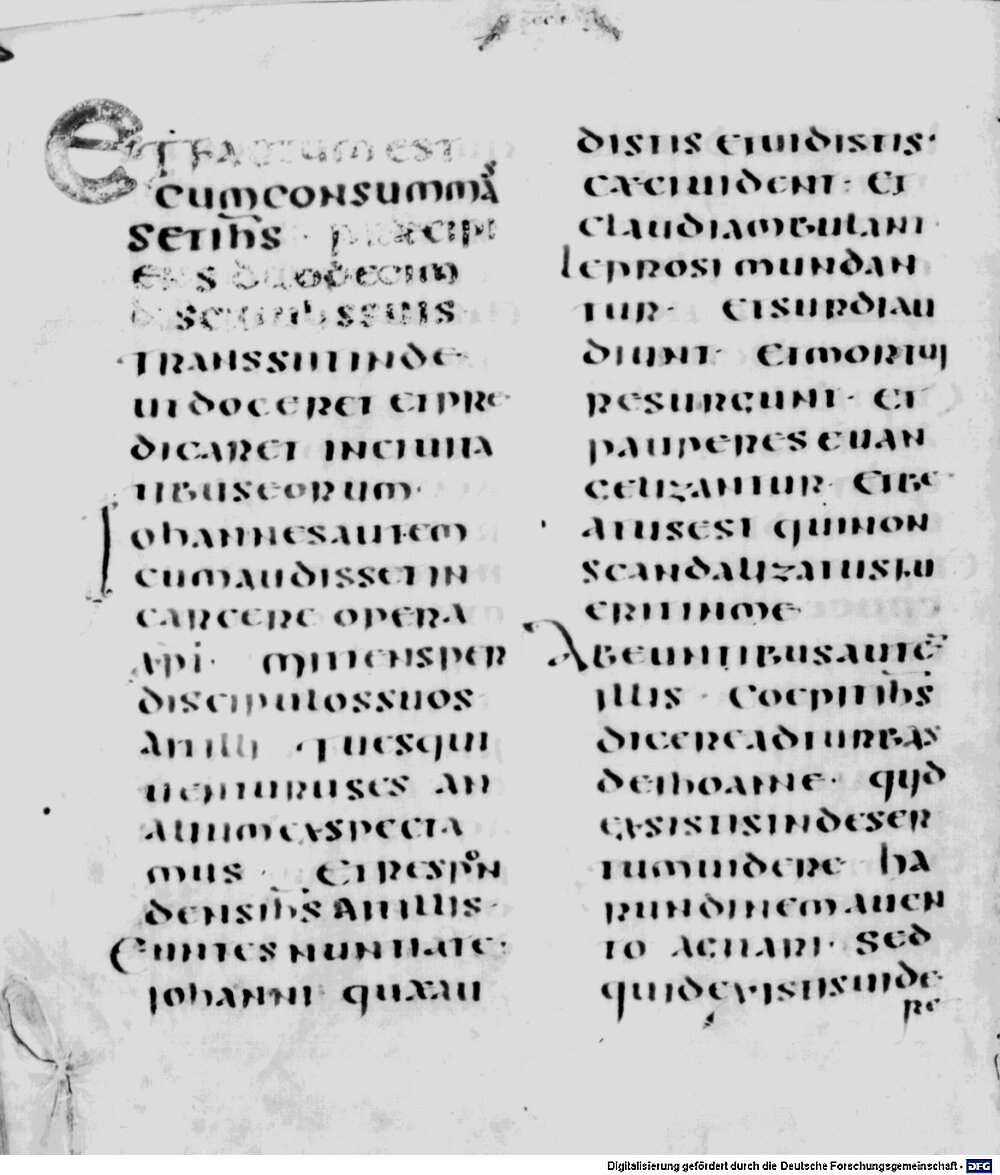 ET FACTUM EST
CUM CONSUMMAS
SET IH̅S PRAECIPI
ENS DUODECIM
DISCIPULIS SUIS
TRANSSIIT INDE
UT DOCERET ET PRE
DICARET IN CIUITA
TIBUS EORUM·
IOHANNES AUTEM
CUM AUDISSET IN
CARCERE OPERA
X̅P̅I· MITTENS PER
DISCIPULOS SUOS
AIT ILLI· TU ES QUI
UENTURUS ES AN
ALIUM EXSPECTA
MUS· ET RESPON
DENS IH̅S AIT ILLIS·
EUNTES NUNTIATE·
IOHANNI QUAE AU
DISTIS ET UIDISTIS·
CAECI UIDENT· ET
CLAUDI AMBULANT·
LEPROSI MUNDAN
TUR· ET SURDI AU
DIUNT· ET MORTUI
RESURGUNT· ET
PAUPERES EUAN
GELIZANTUR· ET BE
ATUS EST QUI NON
SCANDALIZATUS FU
ERIT IN ME·
ABEUNTIBUS AUTĒ
ILLIS· COEPIT IH̅S
DICERE AD TURBAS
DE IHOANNE· QUID
EXSISTIS IN DESER
TUM UIDERE HA
RUNDINEM A UEN
TO AGITARI· SED
QUID EXISTIS UIDE
RE
Digitalisierung gefördert durch die Deutsche Forschungsgemeinschaft - DFG